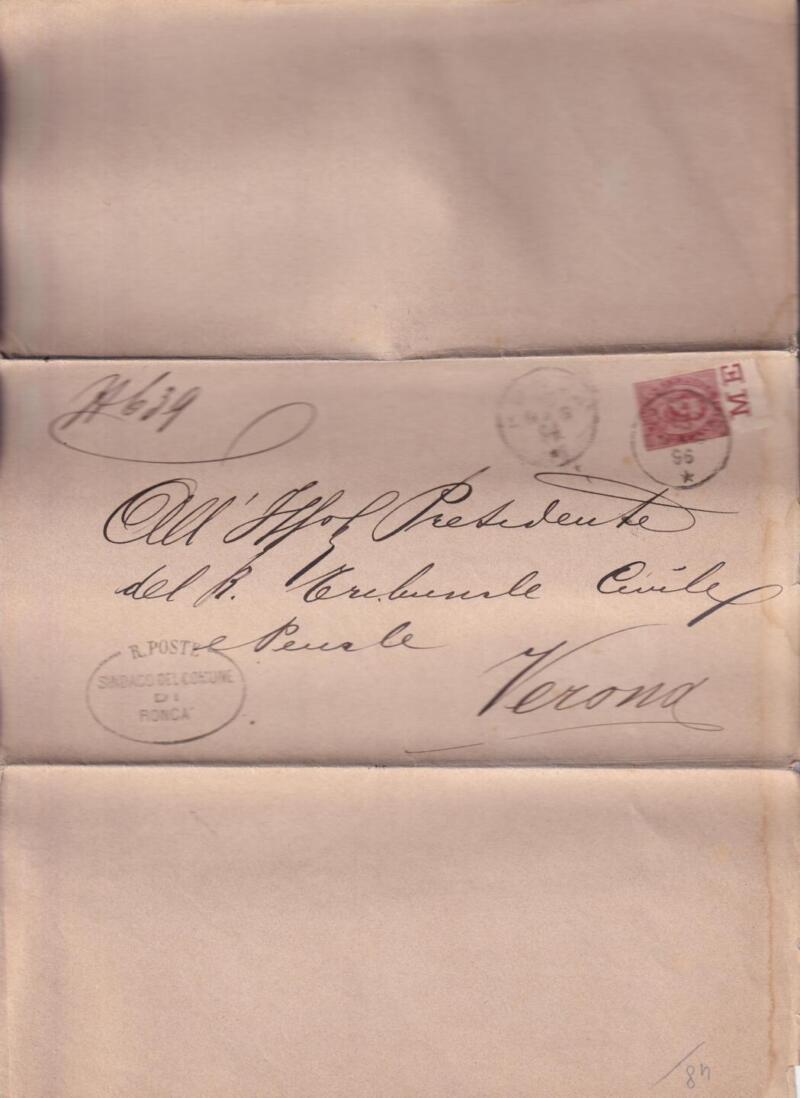 N 639
ME
95
All' Ill Presidente
del R. Tribunale Civile
e Penale
Verona
R. POSTE
SINDACO DEL COMUNE
DI
RONCA'